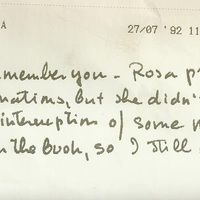 A 27/07 '92 11
member you - Rosa p
nations, but she didn'
interception of some
n the book, so I still